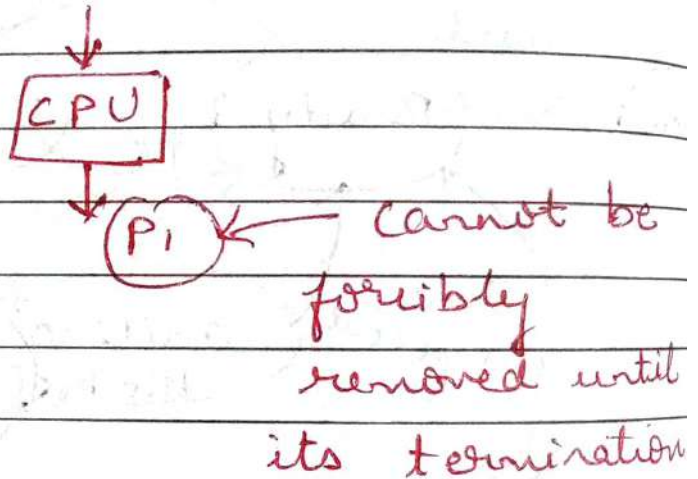 CPU
P1 cannot be
forcibly
removed until
its termination